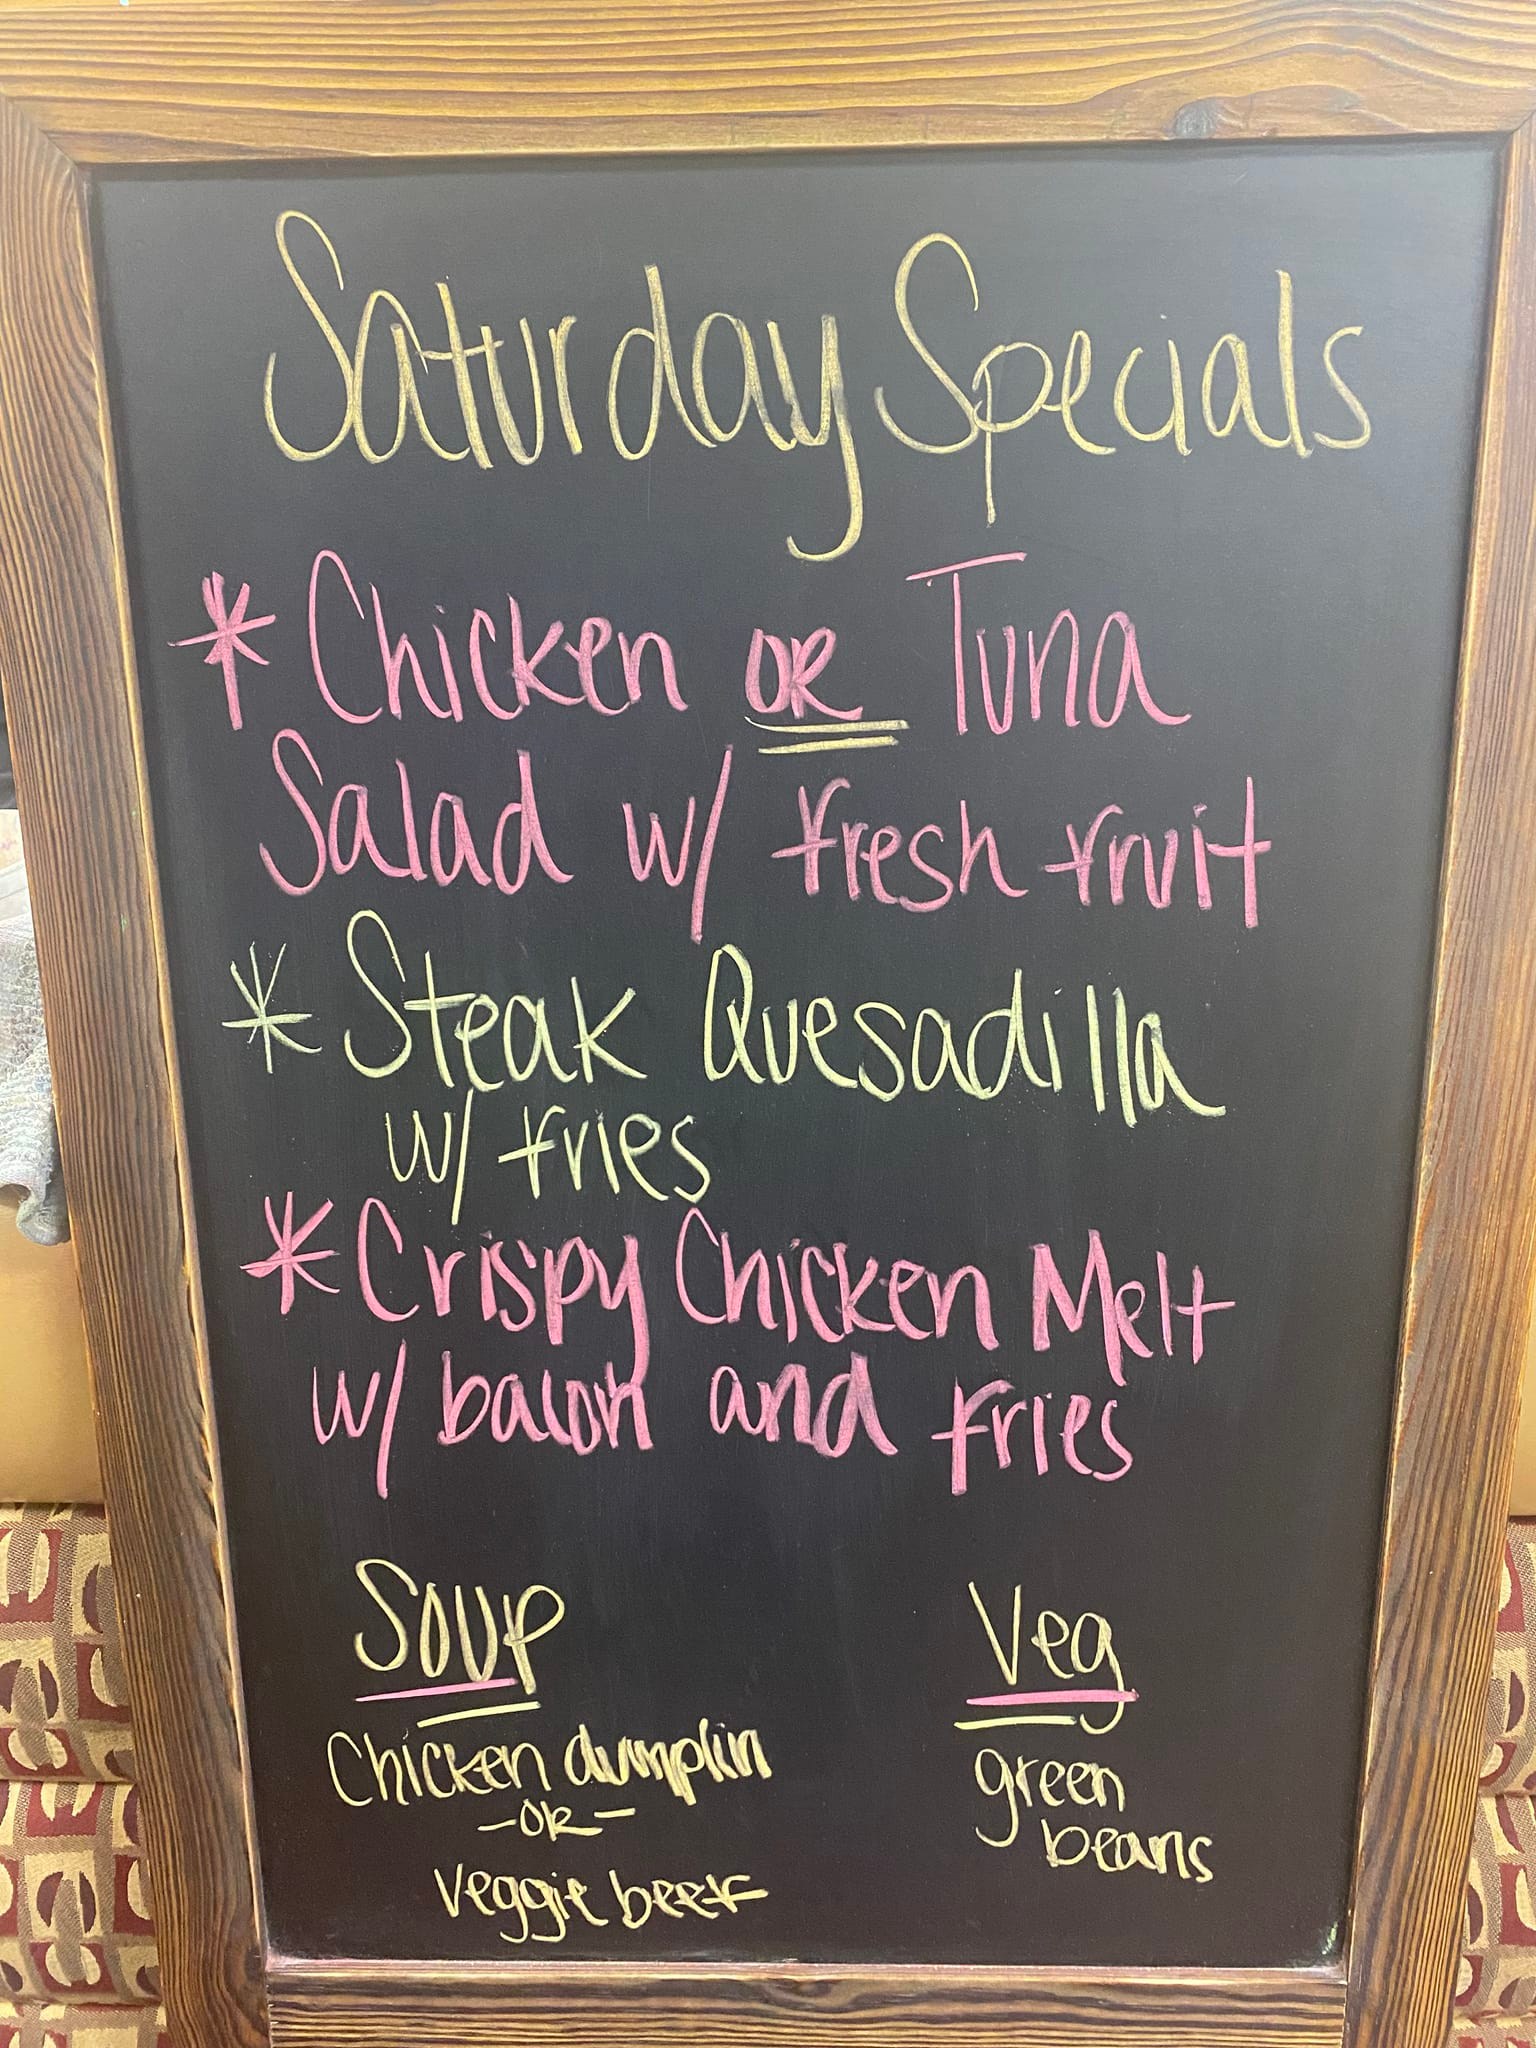 Saturday Specials
* Chicken OR Tuna
Salad w/ fresh fruit
* Steak Quesadilla
w/ fries
* Crispy Chicken Melt
w/ bacon and fries
Soup
Chicken dumplin
- OR -
Veggie beef
Veg
green
beans